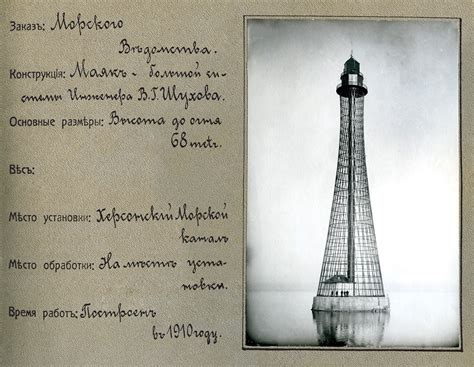 Заказъ: Морского
Вѣдомства.
Конструкція: Маякъ - большой си-
стемы Инженера В.Г. Шухова.
Основные размѣры: Высота до огня
68 metr.
Вѣсъ:
Мѣсто установки: Херсонскій Морской
каналъ
Мѣсто обработки: На мѣстѣ уста-
новки.
Время работъ: Построенъ
въ 1910 году.